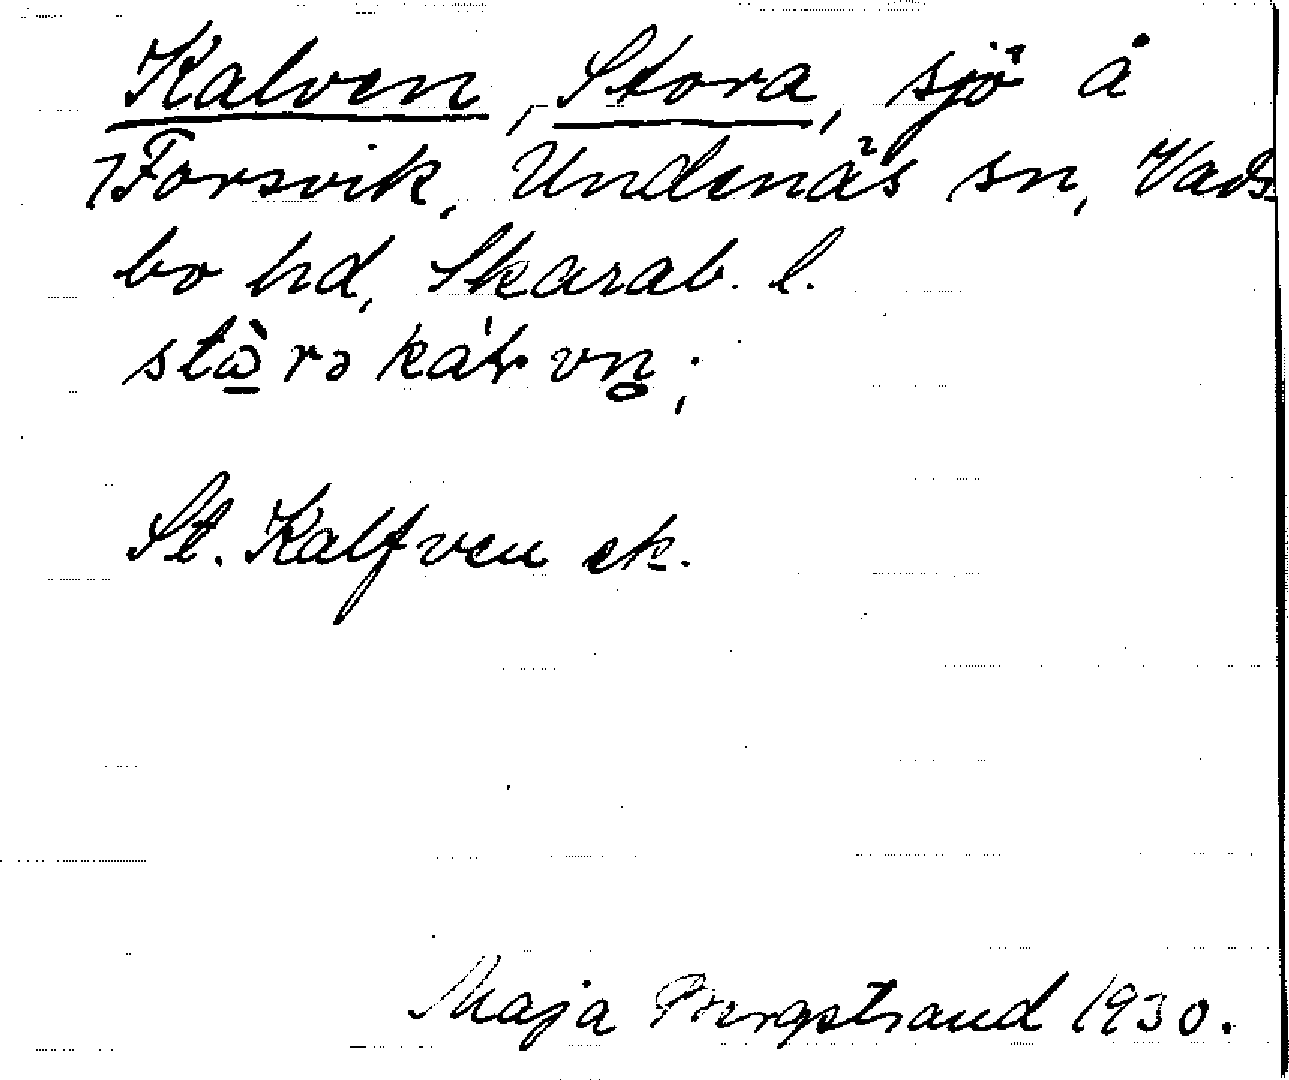 Kalven, Stora, sjö å
Forsvik, Undenäs sn, Vads-
bo hd, Skarab. l.
St. Kalfven ek.
Maja Bergstrand 1930.